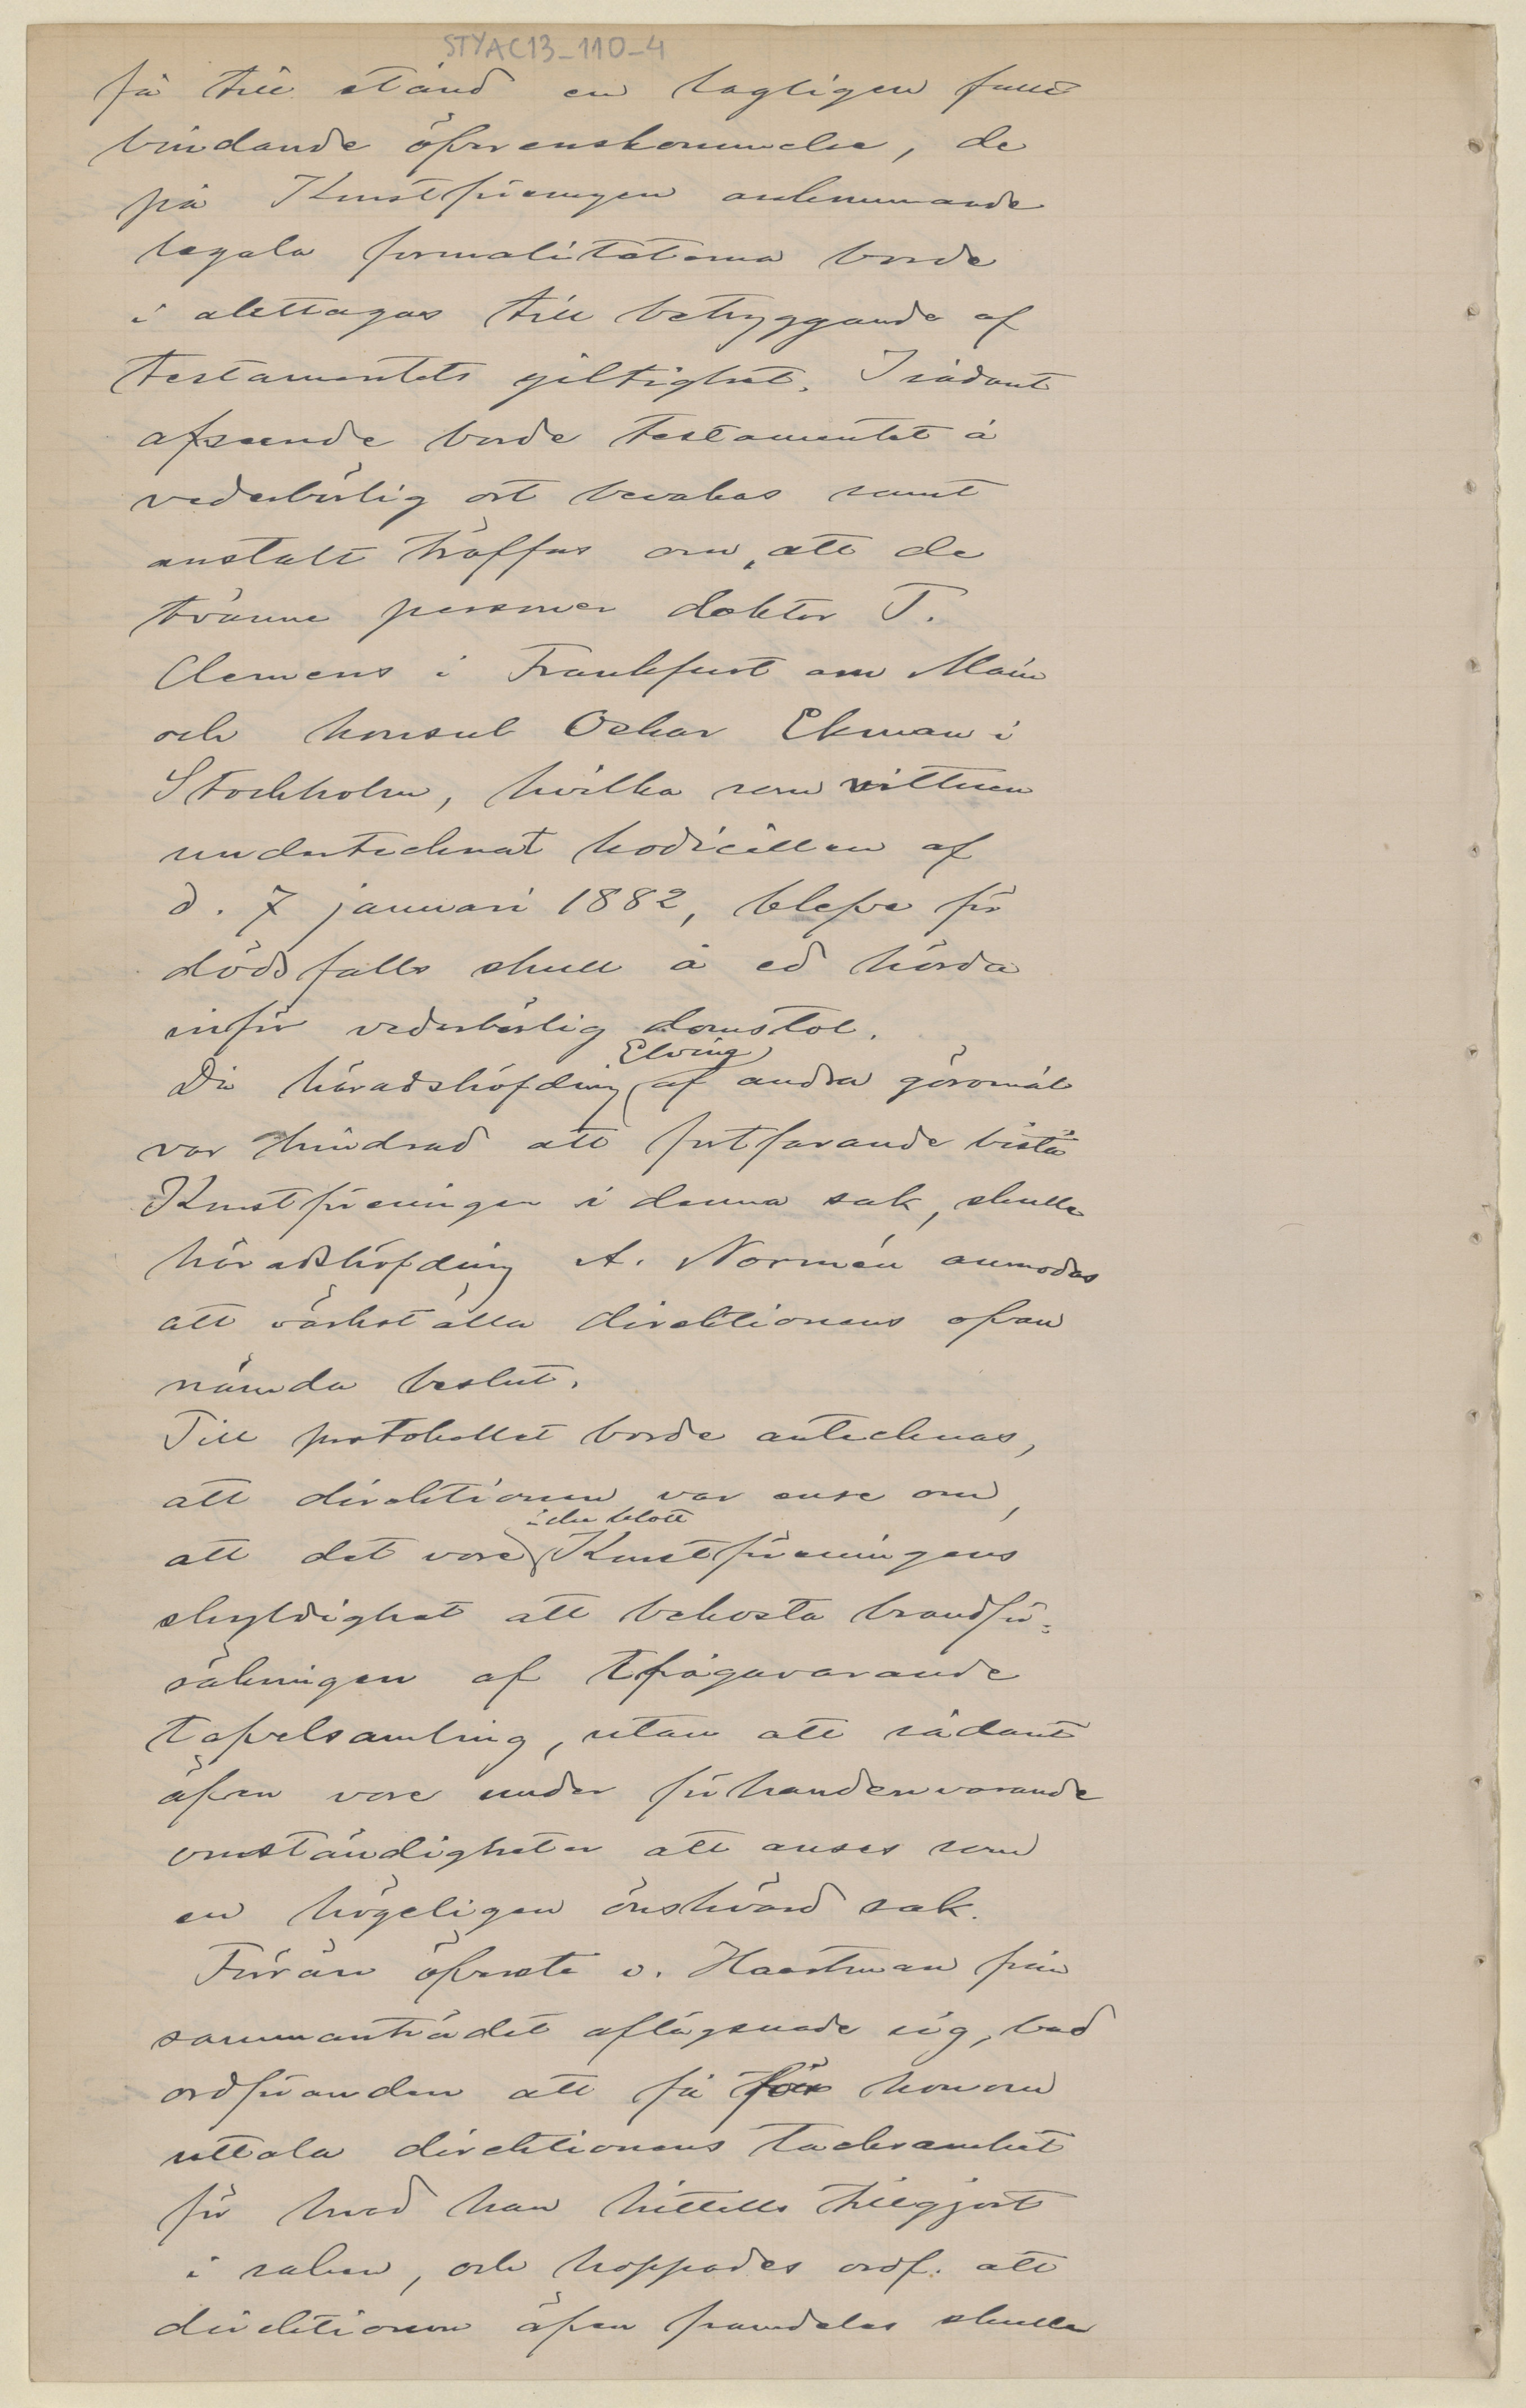 STYAC13_110_4
få till stånd en lagligen fullt
bindande öfverenskommelse, de
på Konstföreningen ankommande
legala formaliteterna borde
i akttagas till betryggande af
testamentets giltighet. I sådant
afseende borde testamentet å
vederbörlig ort bevakas samt
anstalt träffas om, att de
tvänne personer doktor T.
Clemens i Frankfurt am Main
och konsul Oskar Ekman i
Stockholm, hvilka som vittnen
undertecknat kodicillen af
d. 7 januari 1882, blefve för
dödsfalls skull å ed hörda
inför vederbörlig domstol.
Elving
Då häradshöfding af andra göromål
var hindrad att fortfarande bistå
Konstföreningen i denna sak, skulle
häradshöfding A. Normén anmodas
att värkställa direktionens ofvan
nämda beslut.
Till protokollet borde antecknas,
att direktionen var ense om,
icke blott
att det vore Konstföreningens
skyldighet att bekosta brandför-
säkringen af ifrågavarande
tafvelsamling, utan att sådant
äfven vore under förhandenvarande
omständigheter att anses som
en högeligen önskvärd sak.
Förän öfverste v. Haartman från
sammanträdet aflägsnade sig, bad
ordföranden att få för honom
uttala direktionens tacksamhet
för hvad han hittills tillgjort
i saken, och hoppades ordf. att
direktionen äfven framdeles skulle